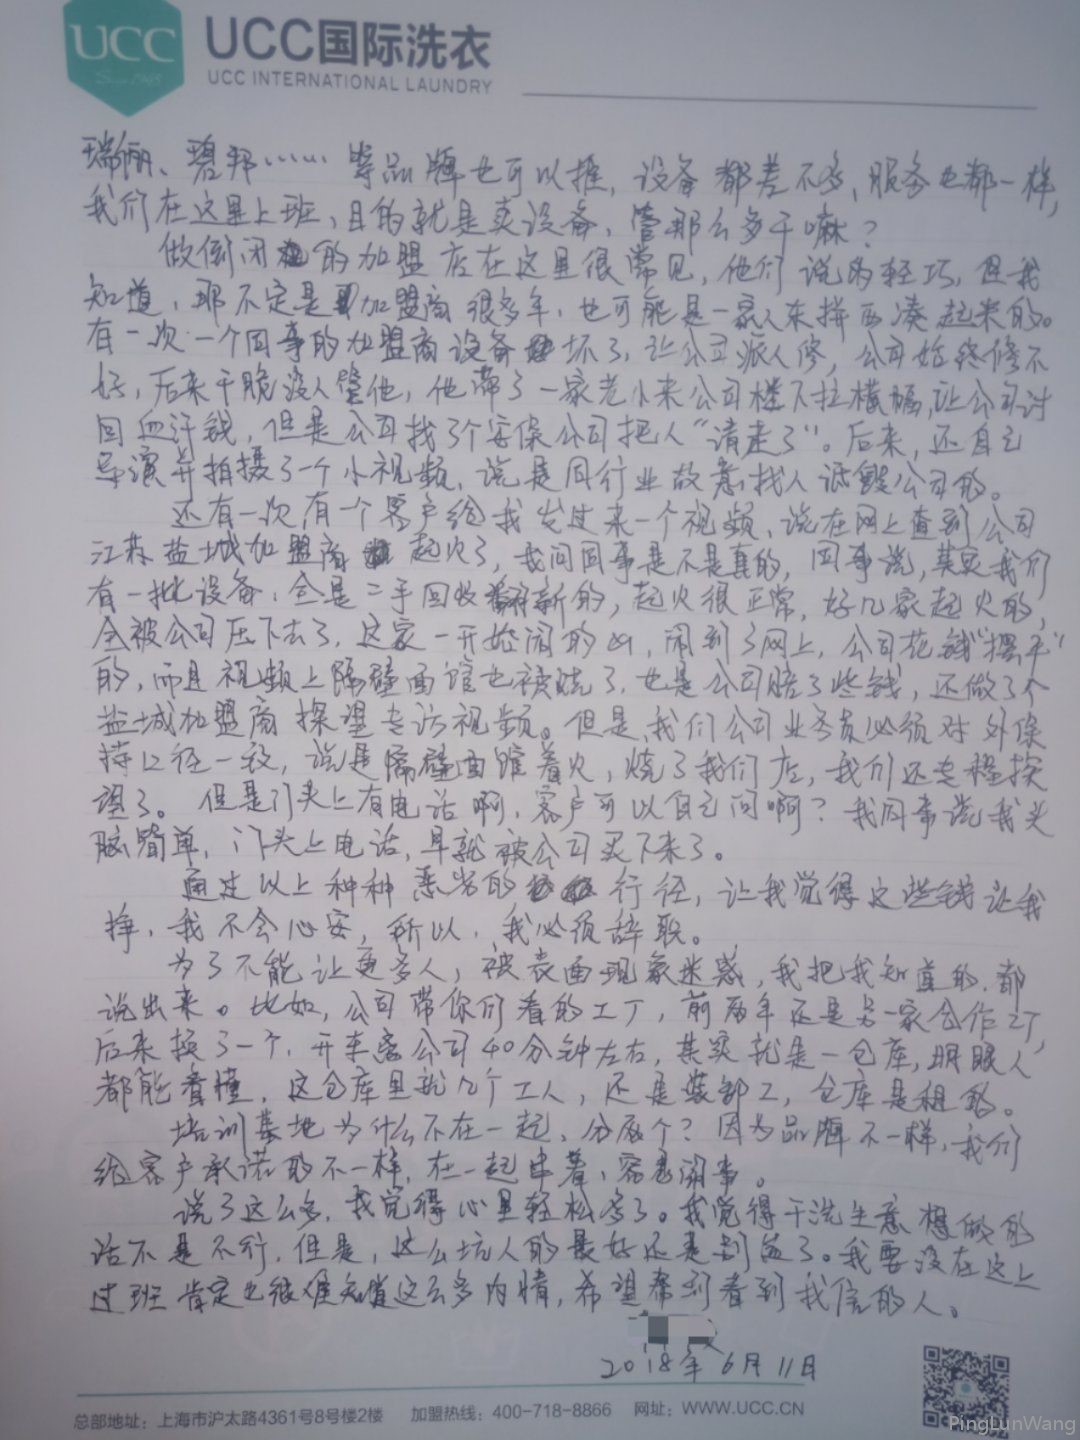 UCC
Since 1965
UCC国际洗衣
UCC INTERNATIONAL LAUNDRY
瑞俪、碧邦……等品牌也可以推，设备都差不多，服务也都一样，
我们在这里上班，目的就是卖设备，管那么多干嘛？
做倒闭的加盟店在这里很常见，他们说的轻巧，但我
知道，那不定是加盟商很多年，也可能是一家人东拼西凑起来的。
有一次一个同事的加盟商设备坏了，让公司派人修，公司始终修不
好，后来干脆没人管他，他带了一家老小来公司楼下拉横幅，让公司讨
回血汗钱，但是公司找了个安保公司把人“请走了”。后来，还自己
导演并拍摄了一个小视频，说是同行业故意找人诋毁公司的。
还有一次有一个客户给我发过来一个视频，说在网上查到公司
江苏盐城加盟商起火了，我问同事是不是真的，同事说，其实我们
有一批设备，全是二手回收翻新的，起火很正常，好几家起火的，
全被公司压下去了，这家一开始闹的凶，闹到了网上，公司花钱“摆平”
的，而且视频上隔壁面馆也被烧了，也是公司赔了些钱，还做了个
盐城加盟商探望专访视频。但是，我们公司业务员必须对外保
持口径一致，说是隔壁面馆着火，烧了我们店，我们还专程探
望了。但是门头上有电话啊，客户可以自己问啊？我同事说我头
脑简单，门头上电话，早就被公司买下来了。
通过以上种种恶劣的行径，让我觉得这些钱让我
挣，我不会心安，所以，我必须辞职。
为了不能让更多人，被表面现象迷惑，我把我知道的，都
说出来。比如，公司带你们看的工厂，前两年还是另一家合作工厂，
后来换了一个，开车离公司40分钟左右，其实就是一仓库，明眼人
都能看懂，这仓库里就几个工人，还是装卸工，仓库是租的。
培训基地为什么不在一起，分成个？因为品牌不一样，我们
给客户承诺的不一样，在一起串着，容易闹事。
说了这么多，我觉得心里轻松多了。我觉得干洗生意想做的
话不是不行，但是，这么坑人的最好还是别做了。我要没在这上
过班肯定也很难知道这么多内情，希望帮到看到我信的人。
2018年6月11日
总部地址：上海市沪太路4361号8号楼2楼 加盟热线：400-718-8866 网址：WWW.UCC.CN
PingLunWang